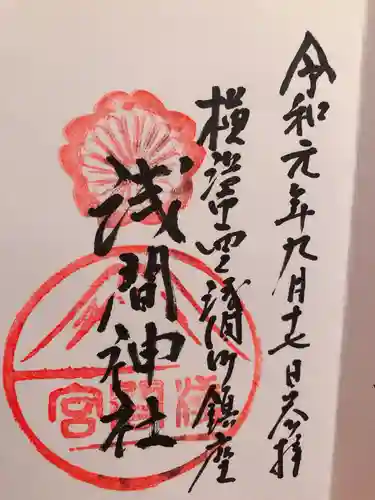 令和元年九月十七日参拝
横浜市西区浅間町鎮座
浅間神社
浅間宮